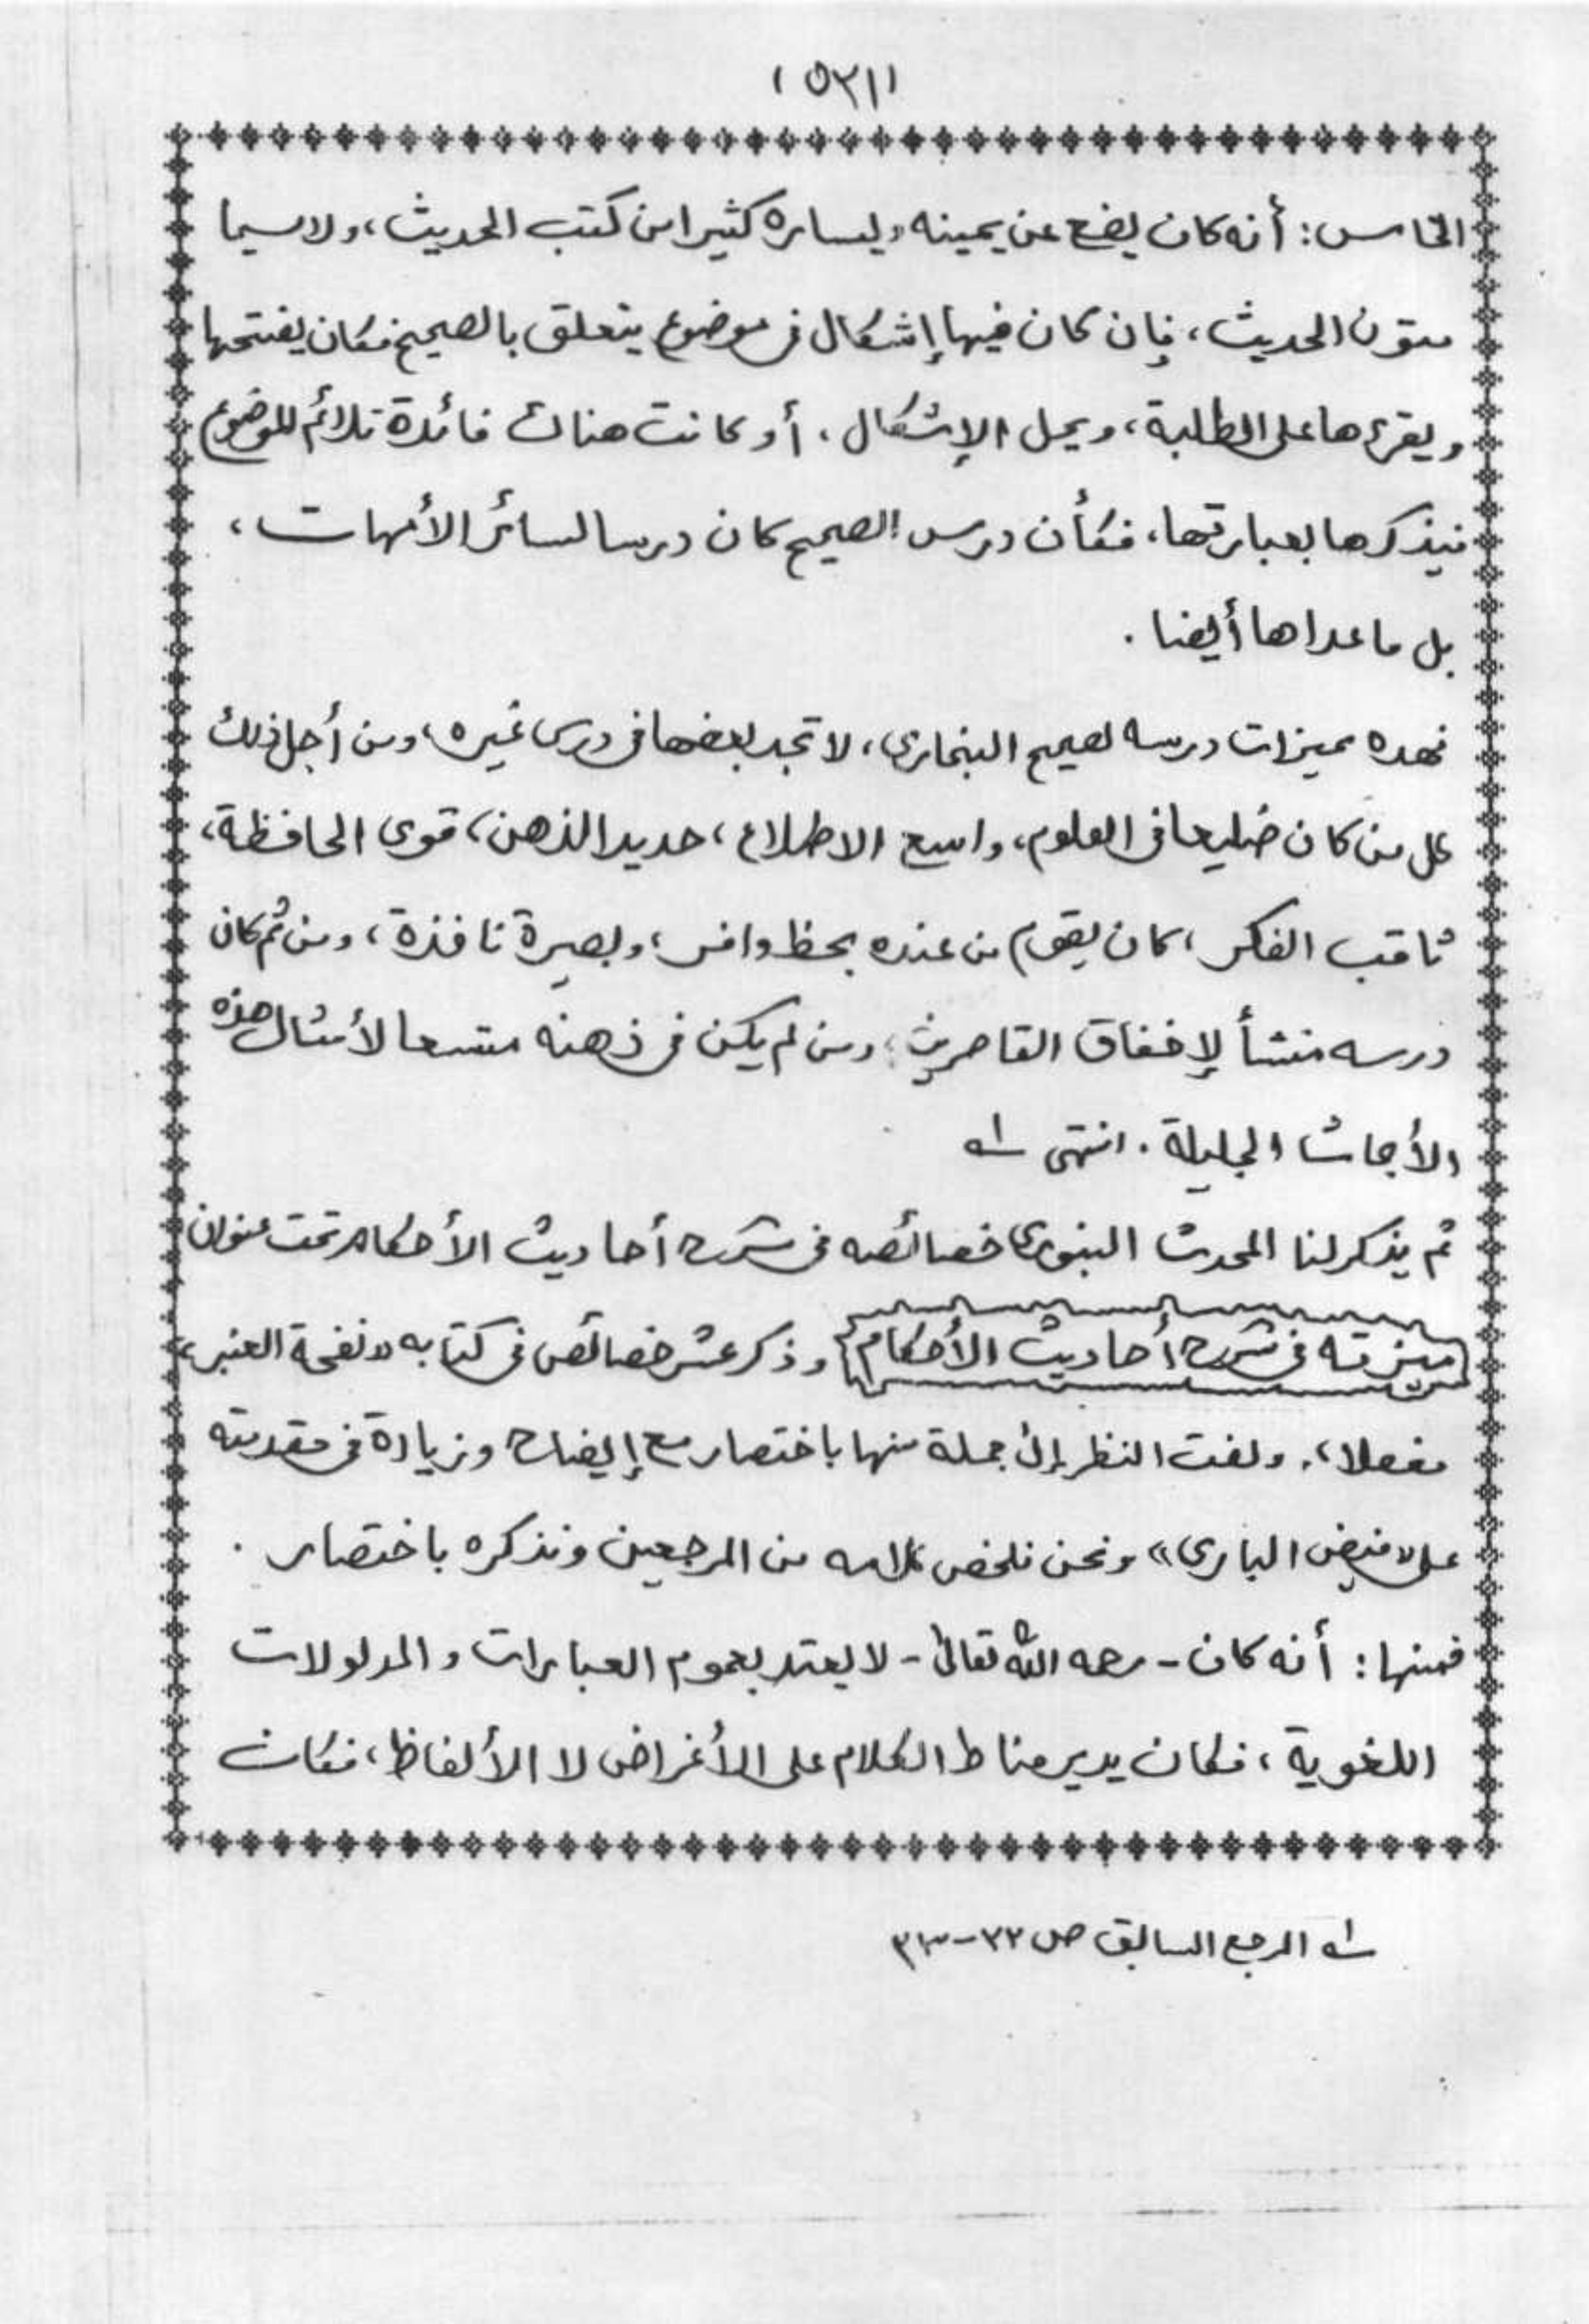 (٥٣١)
الخامس: أنه كان يضع عن يمينه ويساره كثيرا من كتب الحديث، ولاسيما
متون الحديث، فإن كان فيها إشكال فى موضوع يتعلق بالصحيح فكان يفتحها
ويقرءها على الطلبة، ويحل الإشكال. أو كانت هناك فائدة تلائم للموضوع
فيذكرها بعبارتها، فكأن درس الصحيح كان درسا لسائر الأمهات،
بل ماعداها أيضا.
فهذه ميزات درسه لصحيح البخارى، لا تجد بعضها فى درس غيره، ومن أجل ذلك
كل من كان ضليعا فى العلوم، واسع الاطلاع، حديد الذهن، قوى الحافظة،
ثاقب الفكر، كان يقوم من عنده بحظ وافر، وبصيرة نافذة، ومن ثم كان
درسه منشأ لإخفاق القاصرين، ومن لم يكن فى ذهنه متسعا لأمثال هذه
الأبحاث الجليلة. انتهى ١ـه
ثم يذكر لنا المحدث البنورى خصائصه فى شرح أحاديث الأحكام تحت عنوان
ميزته فى شرح أحاديث الأحكام وذكر عشر خصائص فى كتابه «نفحة العنبر»
مفصلا،. ولفت النظر إلى جملة منها باختصار مع إيضاح وزيادة فى مقدمته
على «فيض البارى» ونحن نلخص كلامه من المرجعين ونذكره باختصار.
فمنها: أنه كان - رحمه الله تعالى - لا يعتد بعموم العبارات والمدلولات
اللغوية، فكان يدير مناط الكلام على الأغراض لا الألفاظ، فكان
١ـه المرجع السابق ص